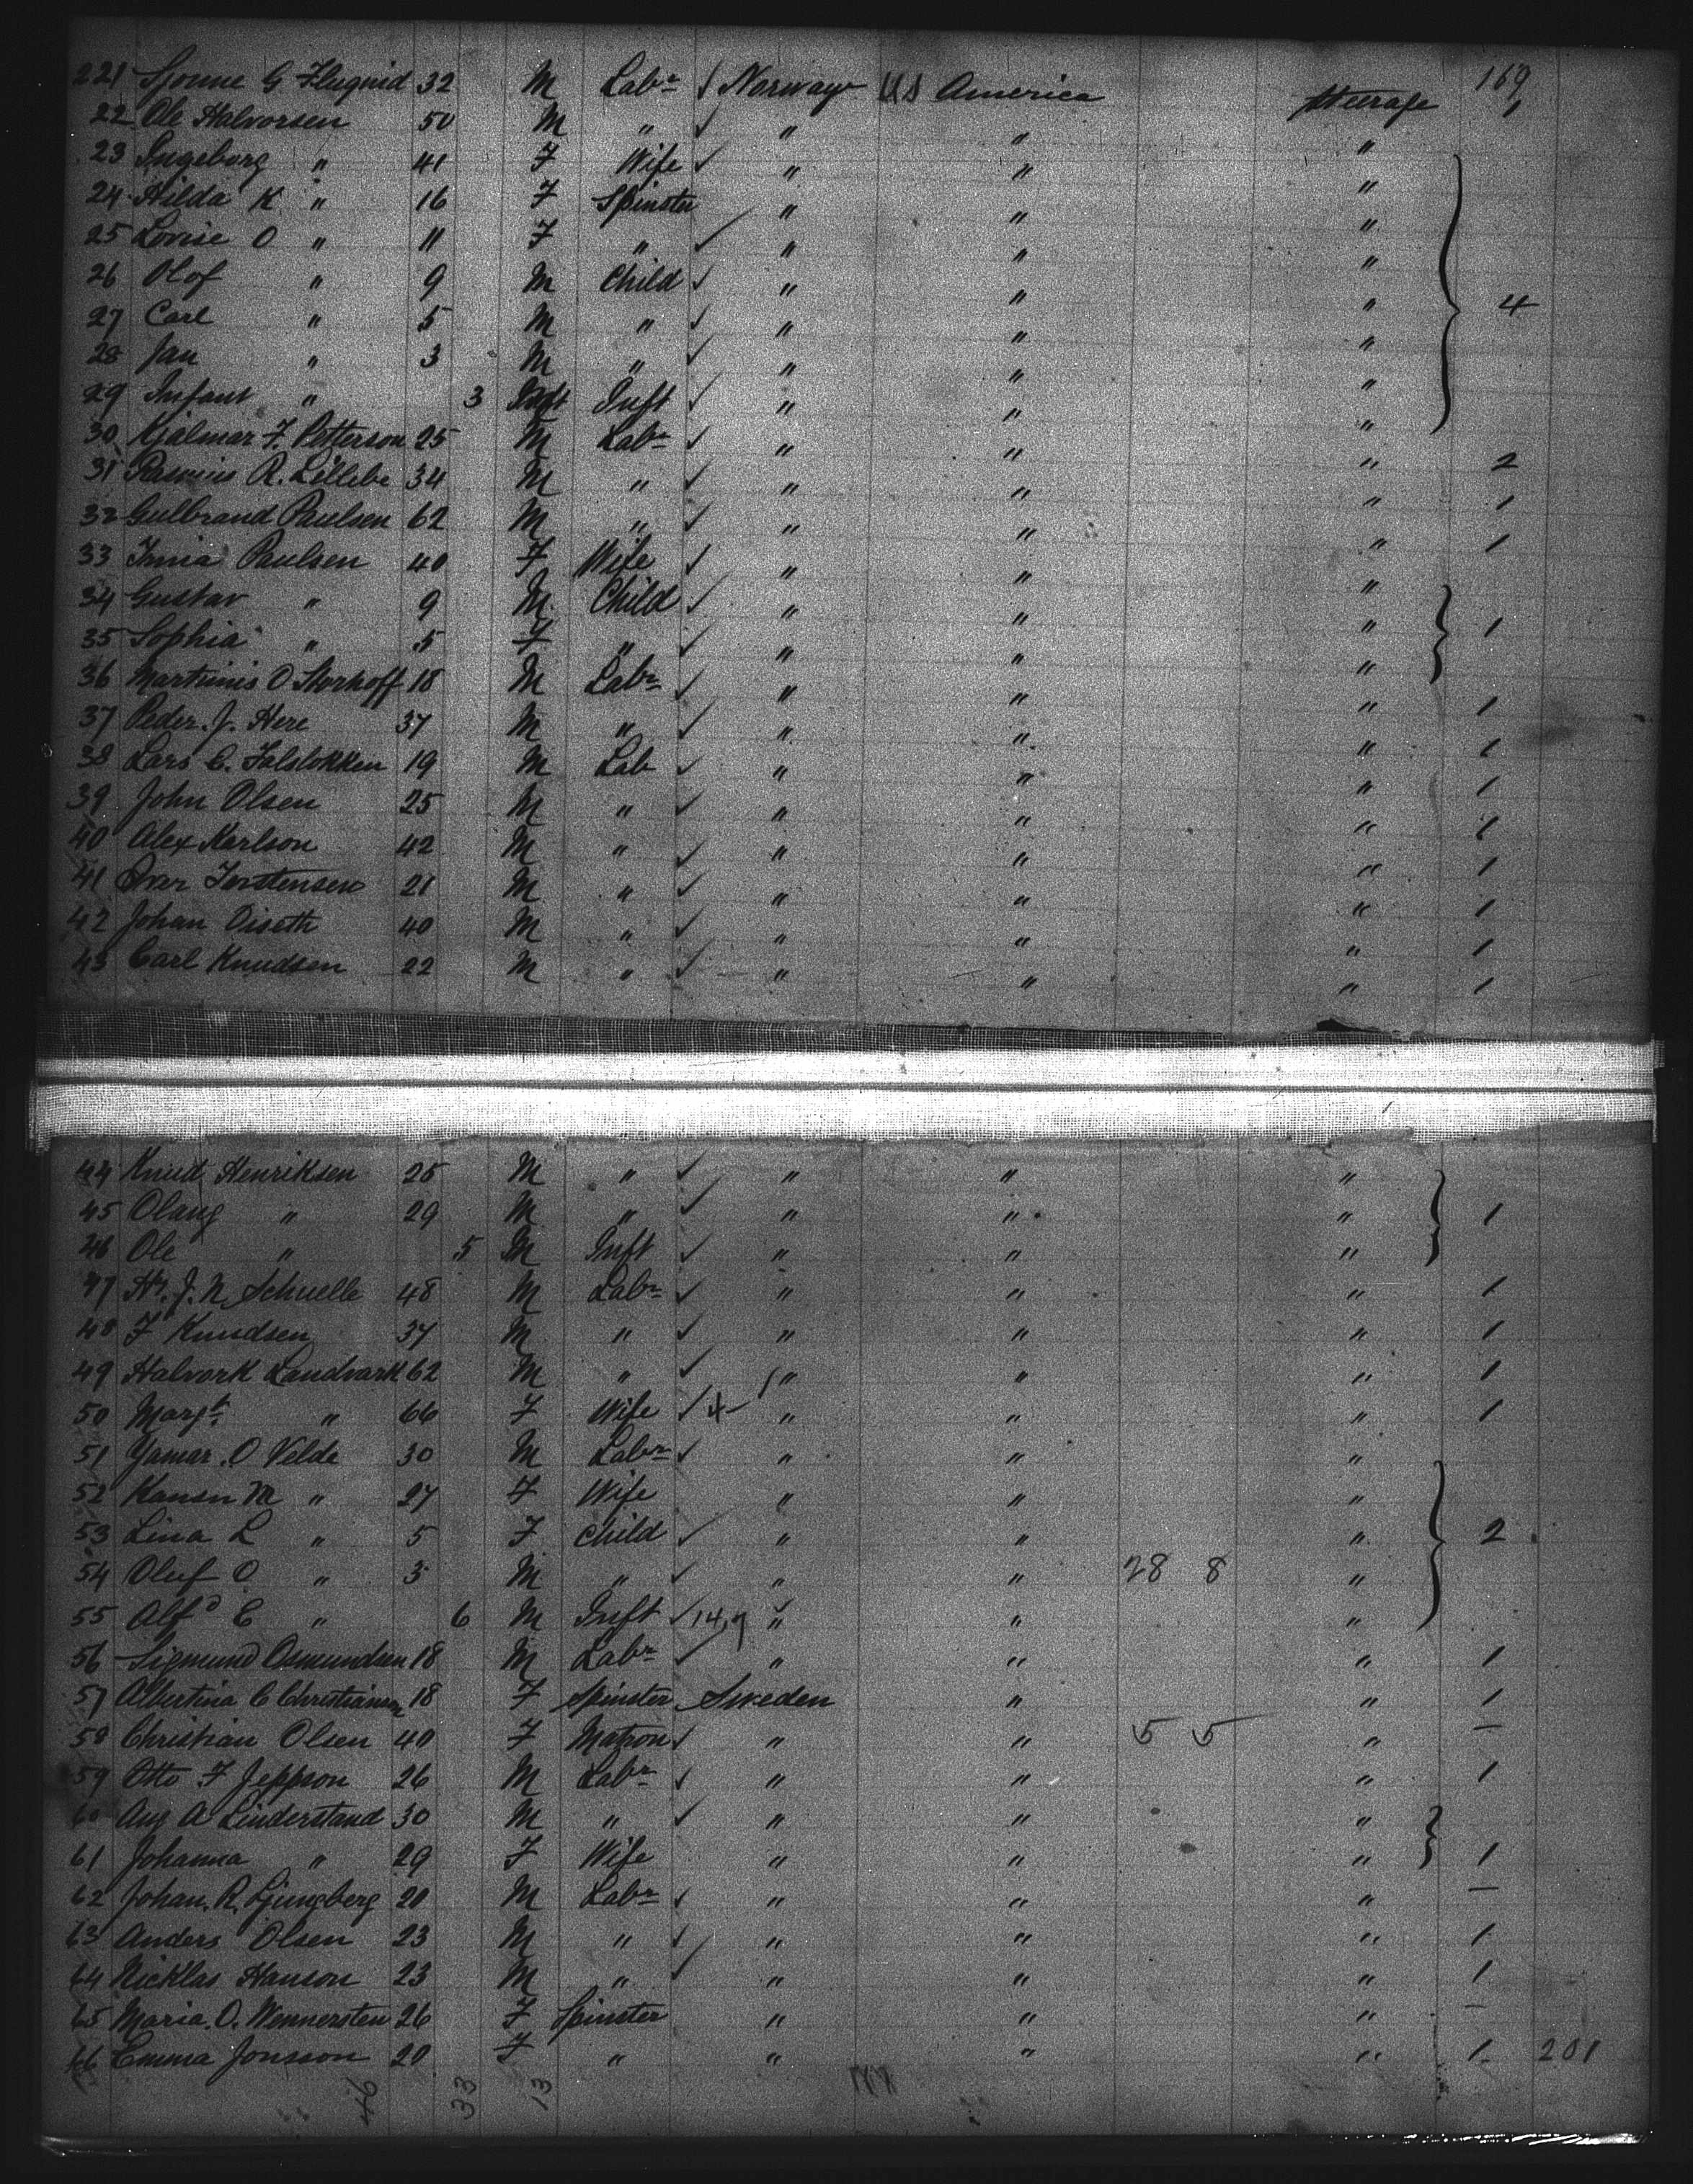 169
221 G 32 M Labr ✓ Norway US America Steerage 1
22 Ole Halvorsen 50 M " ✓ " " "
23 Ingeborg " 41 F Wife ✓ " " "
24 Hilda K " 16 F Spinster " " "
25 Lovise O " 11 F " ✓ " " "
26 Olof " 9 M Child ✓ " " " 4
27 Carl " 5 M " ✓ " " "
28 Jan " 3 M " ✓ " " "
29 Infant " 3 Inft ✓ " " "
30 Hjalmar F. Petterson 25 M Labr ✓ " " " 2
31 R. Lillebe 34 M " ✓ " " " 1
32 Gulbrand Paulsen 62 M " ✓ " " " 1
33 Paulsen 40 F Wife ✓ " " "
34 Gustav " 9 M Child ✓ " " " 1
35 Sophia " 5 F " ✓ " " "
36 Martinus O Storhoff 18 M Labr ✓ " " " 1
37 Peder. J. Here 37 M " ✓ " " " 1
38 Lars C. 19 M Lab ✓ " " " 1
39 John Olsen 25 M " ✓ " " " 1
40 Alex Karlson 42 M " ✓ " " " 1
41 Iver Torstensen 21 M " ✓ " " " 1
42 Johan Diseth 40 M " ✓ " " " 1
43 Carl Knudsen 22 M " ✓ " " " 1
44 Knud Henriksen 25 M " ✓ " " "
45 Olaug " 29 M " ✓ " " " 1
46 Ole " 5 M Inft ✓ " " "
47 Hy. J. N. Schuelle 48 M Labr ✓ " " " 1
48 F Knudsen 37 M " ✓ " " " 1
49 Halvork Landvark 62 M " ✓ " " " 1
50 Margt " 66 F Wife ✓ 4- " " " 1
51 Yamar. O Velde 30 M Labr ✓ " " "
52 M " 27 F Wife " " "
53 Lina L " 5 F Child ✓ " " " 2
54 Oluf O " 3 M " ✓ " " 28 8 "
55 Alfd C " 6 M Inft ✓ " " "
56 Sigmund Osmundsen 18 M Labr ✓ " " " 1
57 Albertina C Christiansen 18 F Spinster Sweden " " 1
58 Christian Olsen 40 F Matron ✓ " " 5 5 " –
59 Otto F Jeppson 26 M Labr ✓ " " " 1
60 Aug A Linderstand 30 M " ✓ " " "
61 Johanna " 29 F Wife " " " 1
62 Johan. R. Ljungberg 20 M Labr ✓ " " " –
63 Anders Olsen 23 M " ✓ " " " 1
64 Nicklas Hanson 23 M " ✓ " " " 1
65 Maria. O. Wennersten 26 F Spinster " " " –
66 Emma Jonsson 20 F " " " " 1 201
46 33 13